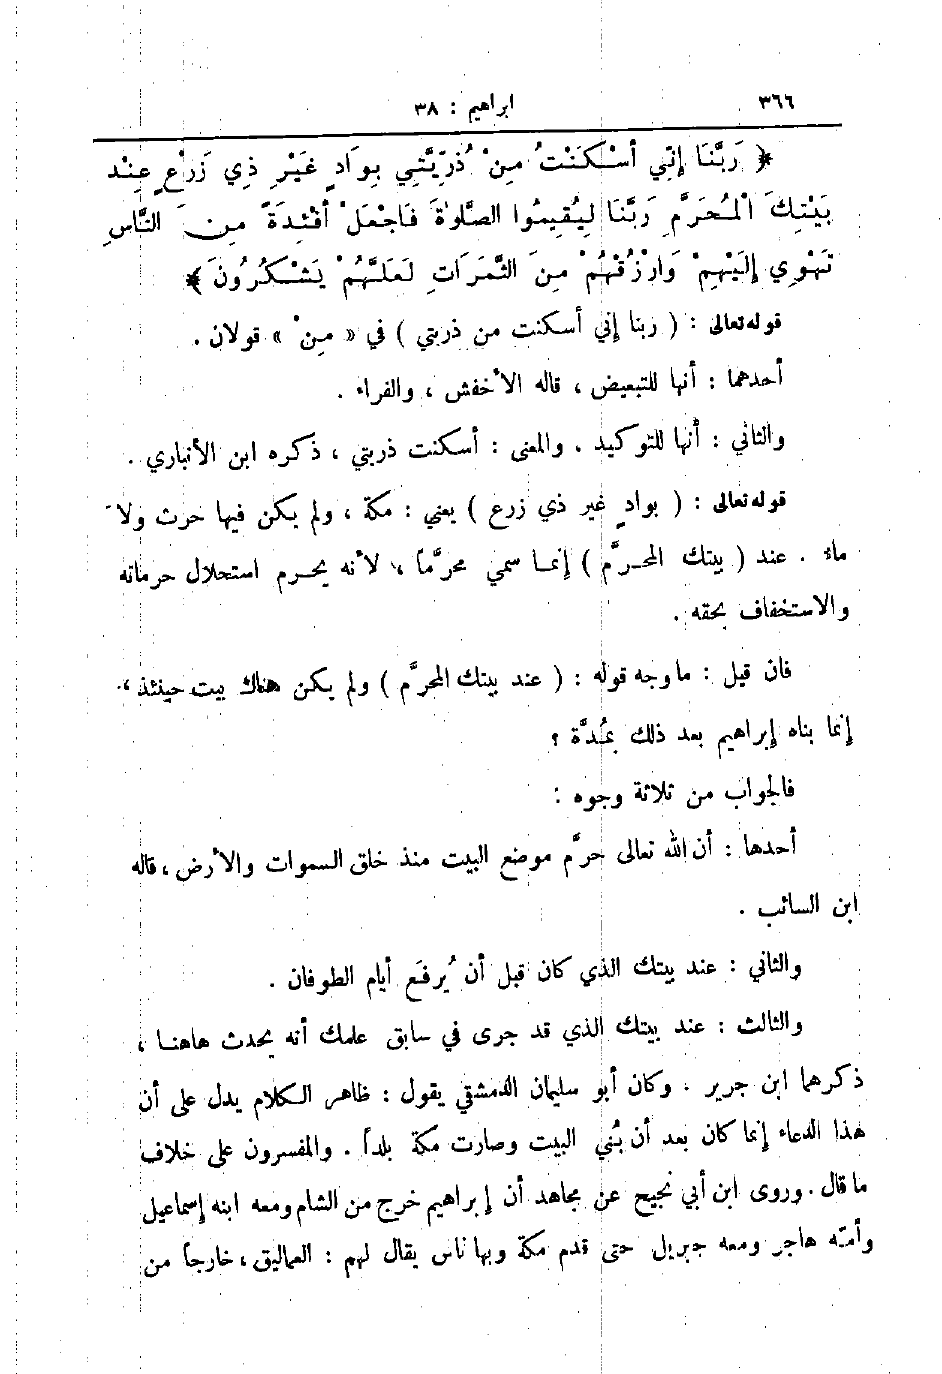 ٣٦٦
ابراهيم : ٣٨
﴿ رَبَّنَا إِنِّي أَسْكَنْتُ مِنْ ذُرِّيَّتِي بِوَادٍ غَيْرِ ذِي زَرْعٍ عِنْدَ
بَيْتِكَ الْمُحَرَّمِ رَبَّنَا لِيُقِيمُوا الصَّلَاةَ فَاجْعَلْ أَفْئِدَةً مِنَ النَّاسِ
تَهْوِي إِلَيْهِمْ وَارْزُقْهُمْ مِنَ الثَّمَرَاتِ لَعَلَّهُمْ يَشْكُرُونَ ﴾
قوله تعالى : ( ربنا إني أسكنت من ذريتي ) في « مِنْ » قولان .
أحدهما : أنها للتبعيض ، قاله الأخفش ، والفراء .
والثاني : أنها للتوكيد . والمعنى : أسكنت ذريتي ، ذكره ابن الأنباري .
قوله تعالى : ( بوادٍ غير ذي زرع ) يعني : مكة ، ولم يكن فيها حرث ولا
ماء . عند ( بيتك المحرَّم ) إنما سمي محرَّماً ، لأنه يحرم استحلال حرماته
والاستخفاف بحقه .
فان قيل : ما وجه قوله : ( عند بيتك المحرَّم ) ولم يكن هناك بيت حينئذ ،
إنما بناه إبراهيم بعد ذلك بمُدَّة ؟
فالجواب من ثلاثة وجوه :
أحدها : أن الله تعالى حرَّم موضع البيت منذ خلق السموات والأرض ، قاله
ابن السائب .
والثاني : عند بيتك الذي كان قبل أن يُرفَع أيام الطوفان .
والثالث : عند بيتك الذي قد جرى في سابق علمك أنه يحدث هاهنا ،
ذكرهما ابن جرير . وكان أبو سليمان الدمشقي يقول : ظاهر الكلام يدل على أن
هذا الدعاء إنما كان بعد أن بُني البيت وصارت مكة بلداً . والمفسرون على خلاف
ما قال . وروى ابن أبي نجيح عن مجاهد أن إبراهيم خرج من الشام ومعه ابنه إسماعيل
وأمّه هاجر ومعه جبريل حتى قدم مكة وبها ناس يقال لهم : العماليق ، خارجاً من